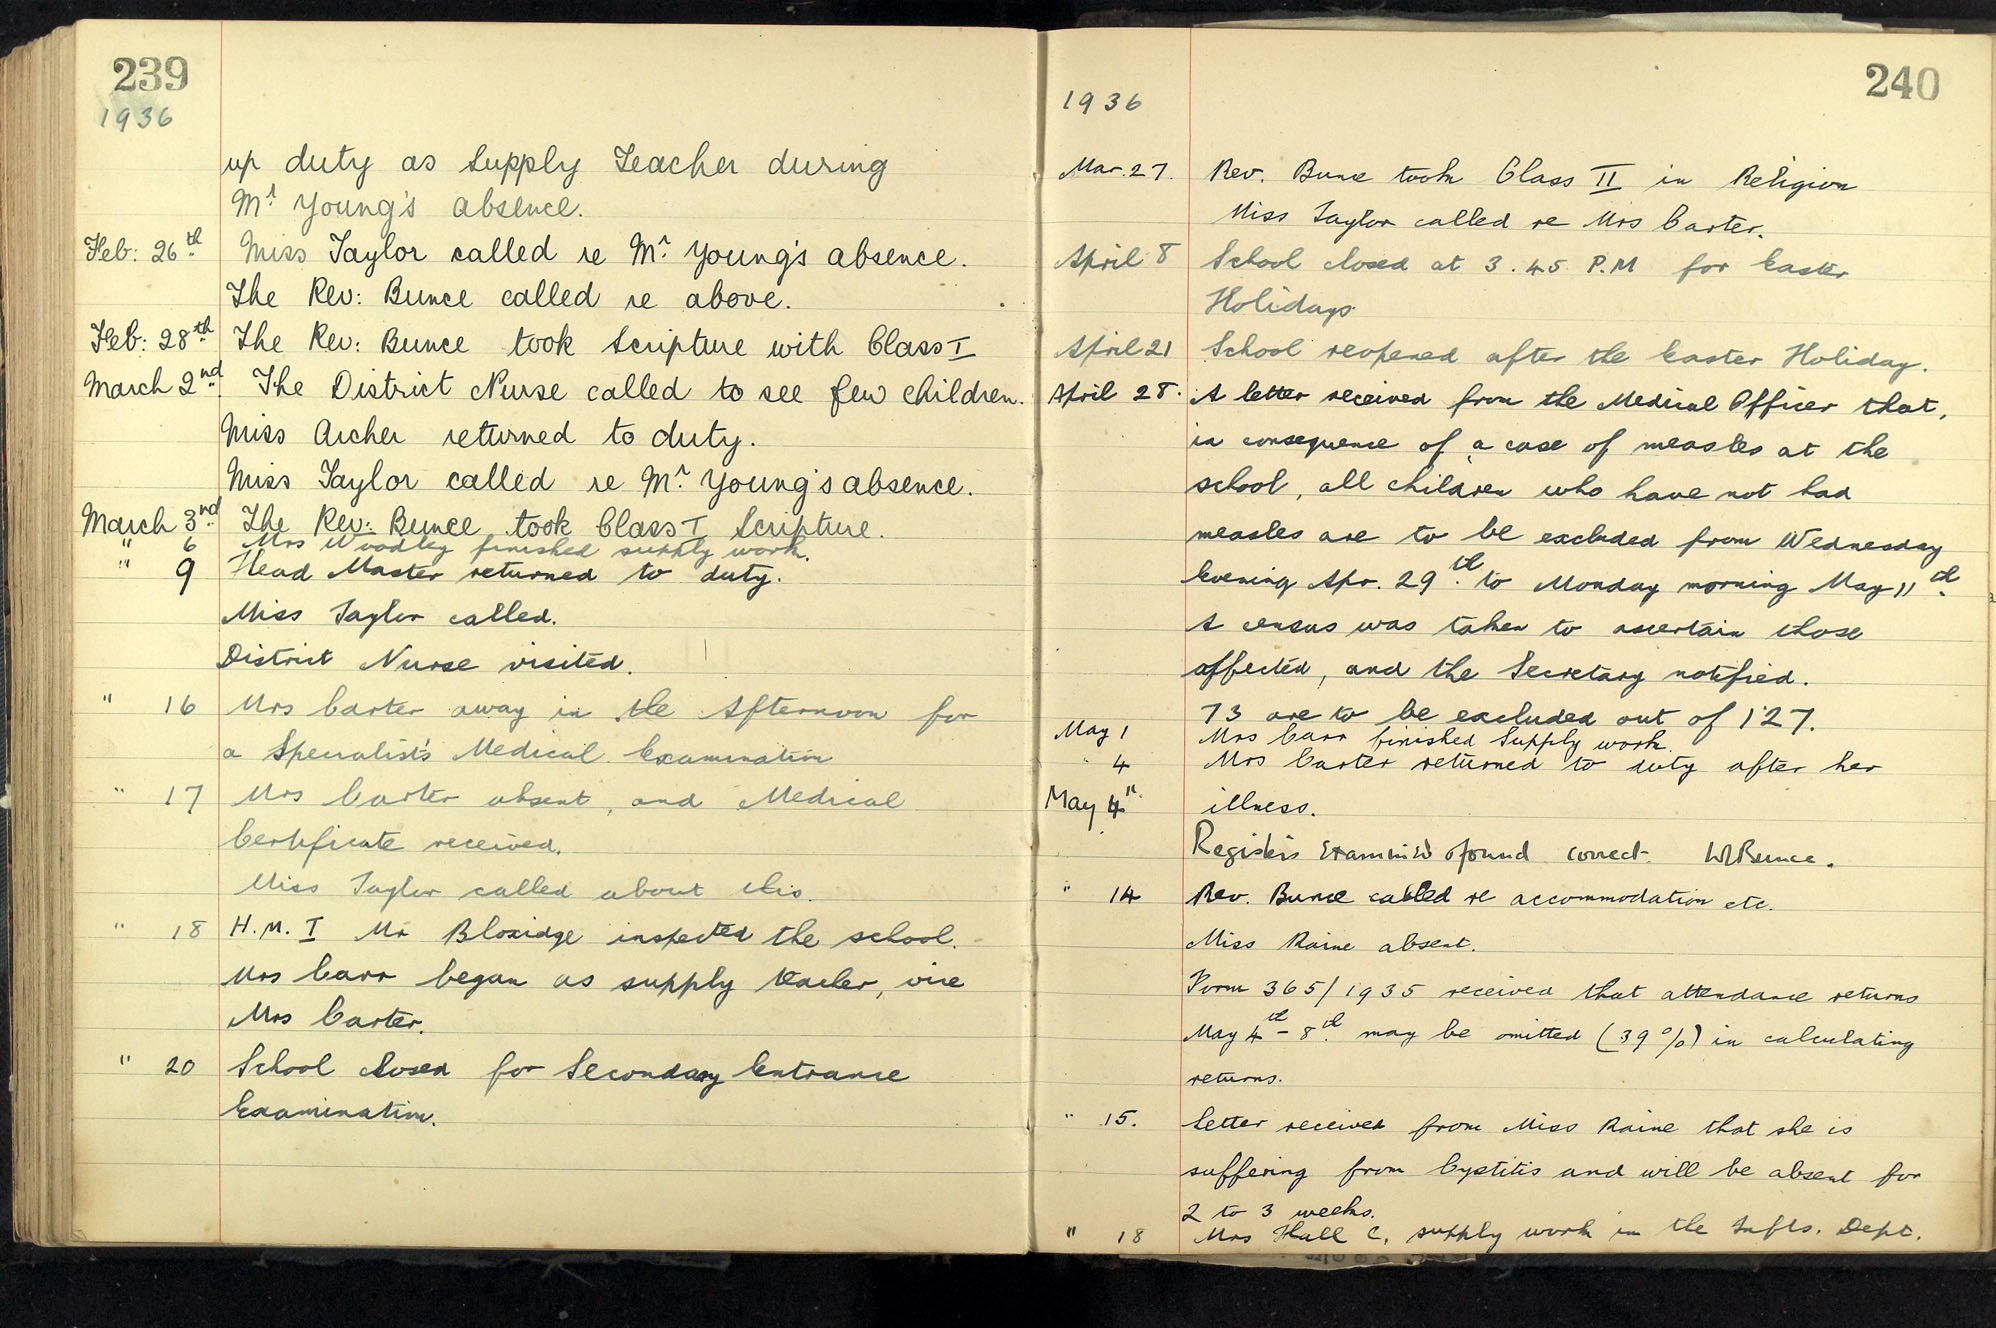 239
1936
up duty as Supply Teacher during
Mr. Young's absence.
Feb: 26th Miss Taylor called re Mr. Young's absence.
The Rev: Bunce called re above.
Feb: 28th The Rev: Bunce took Scripture with Class I
March 2nd. The District Nurse called to see few children.
Miss Archer returned to duty.
Miss Taylor called re Mr. Young's absence.
March 3rd. The Rev: Bunce took Class I Scripture.
" 6 Mrs Woodley finished supply work.
" 9 Head Master returned to duty.
Miss Taylor called.
District Nurse visited.
" 16 Mrs Carter away in the Afternoon for
a Specialist's Medical Examination
" 17 Mrs Carter absent, and Medical
Certificate received.
Miss Taylor called about this.
" 18 H.M.I Mr Bloxidge inspected the school.
Mrs Carr began as supply teacher, vice
Mrs Carter.
" 20 School closed for Secondary Entrance
Examination.
240
1936
Mar. 27. Rev. Bunce took Class II in Religion
Miss Taylor called re Mrs Carter.
April 8 School closed at 3.45 P.M for Easter
Holidays
April 21 School reopened after the Easter Holiday.
April 28. A letter received from the Medical Officer that,
in consequence of a case of measles at the
school, all children who have not had
measles are to be excluded from Wednesday
Evening Apr. 29th. to Monday morning May 11th.
A census was taken to ascertain those
affected, and the Secretary notified.
73 are to be excluded out of 127.
May 1 Mrs Carr finished Supply work.
4 Mrs Carter returned to duty after her
May 4th illness.
Registers examined & found correct W Bunce.
" 14 Rev. Bunce called re accommodation etc.
Miss Raine absent.
Form 365/1935 received that attendance returns
May 4th - 8th. may be omitted (39%) in calculating
returns.
" 15. Letter received from Miss Raine that she is
suffering from Cystitis and will be absent for
2 to 3 weeks.
" 18 Mrs Hall C. supply work in the Infts. Dept.